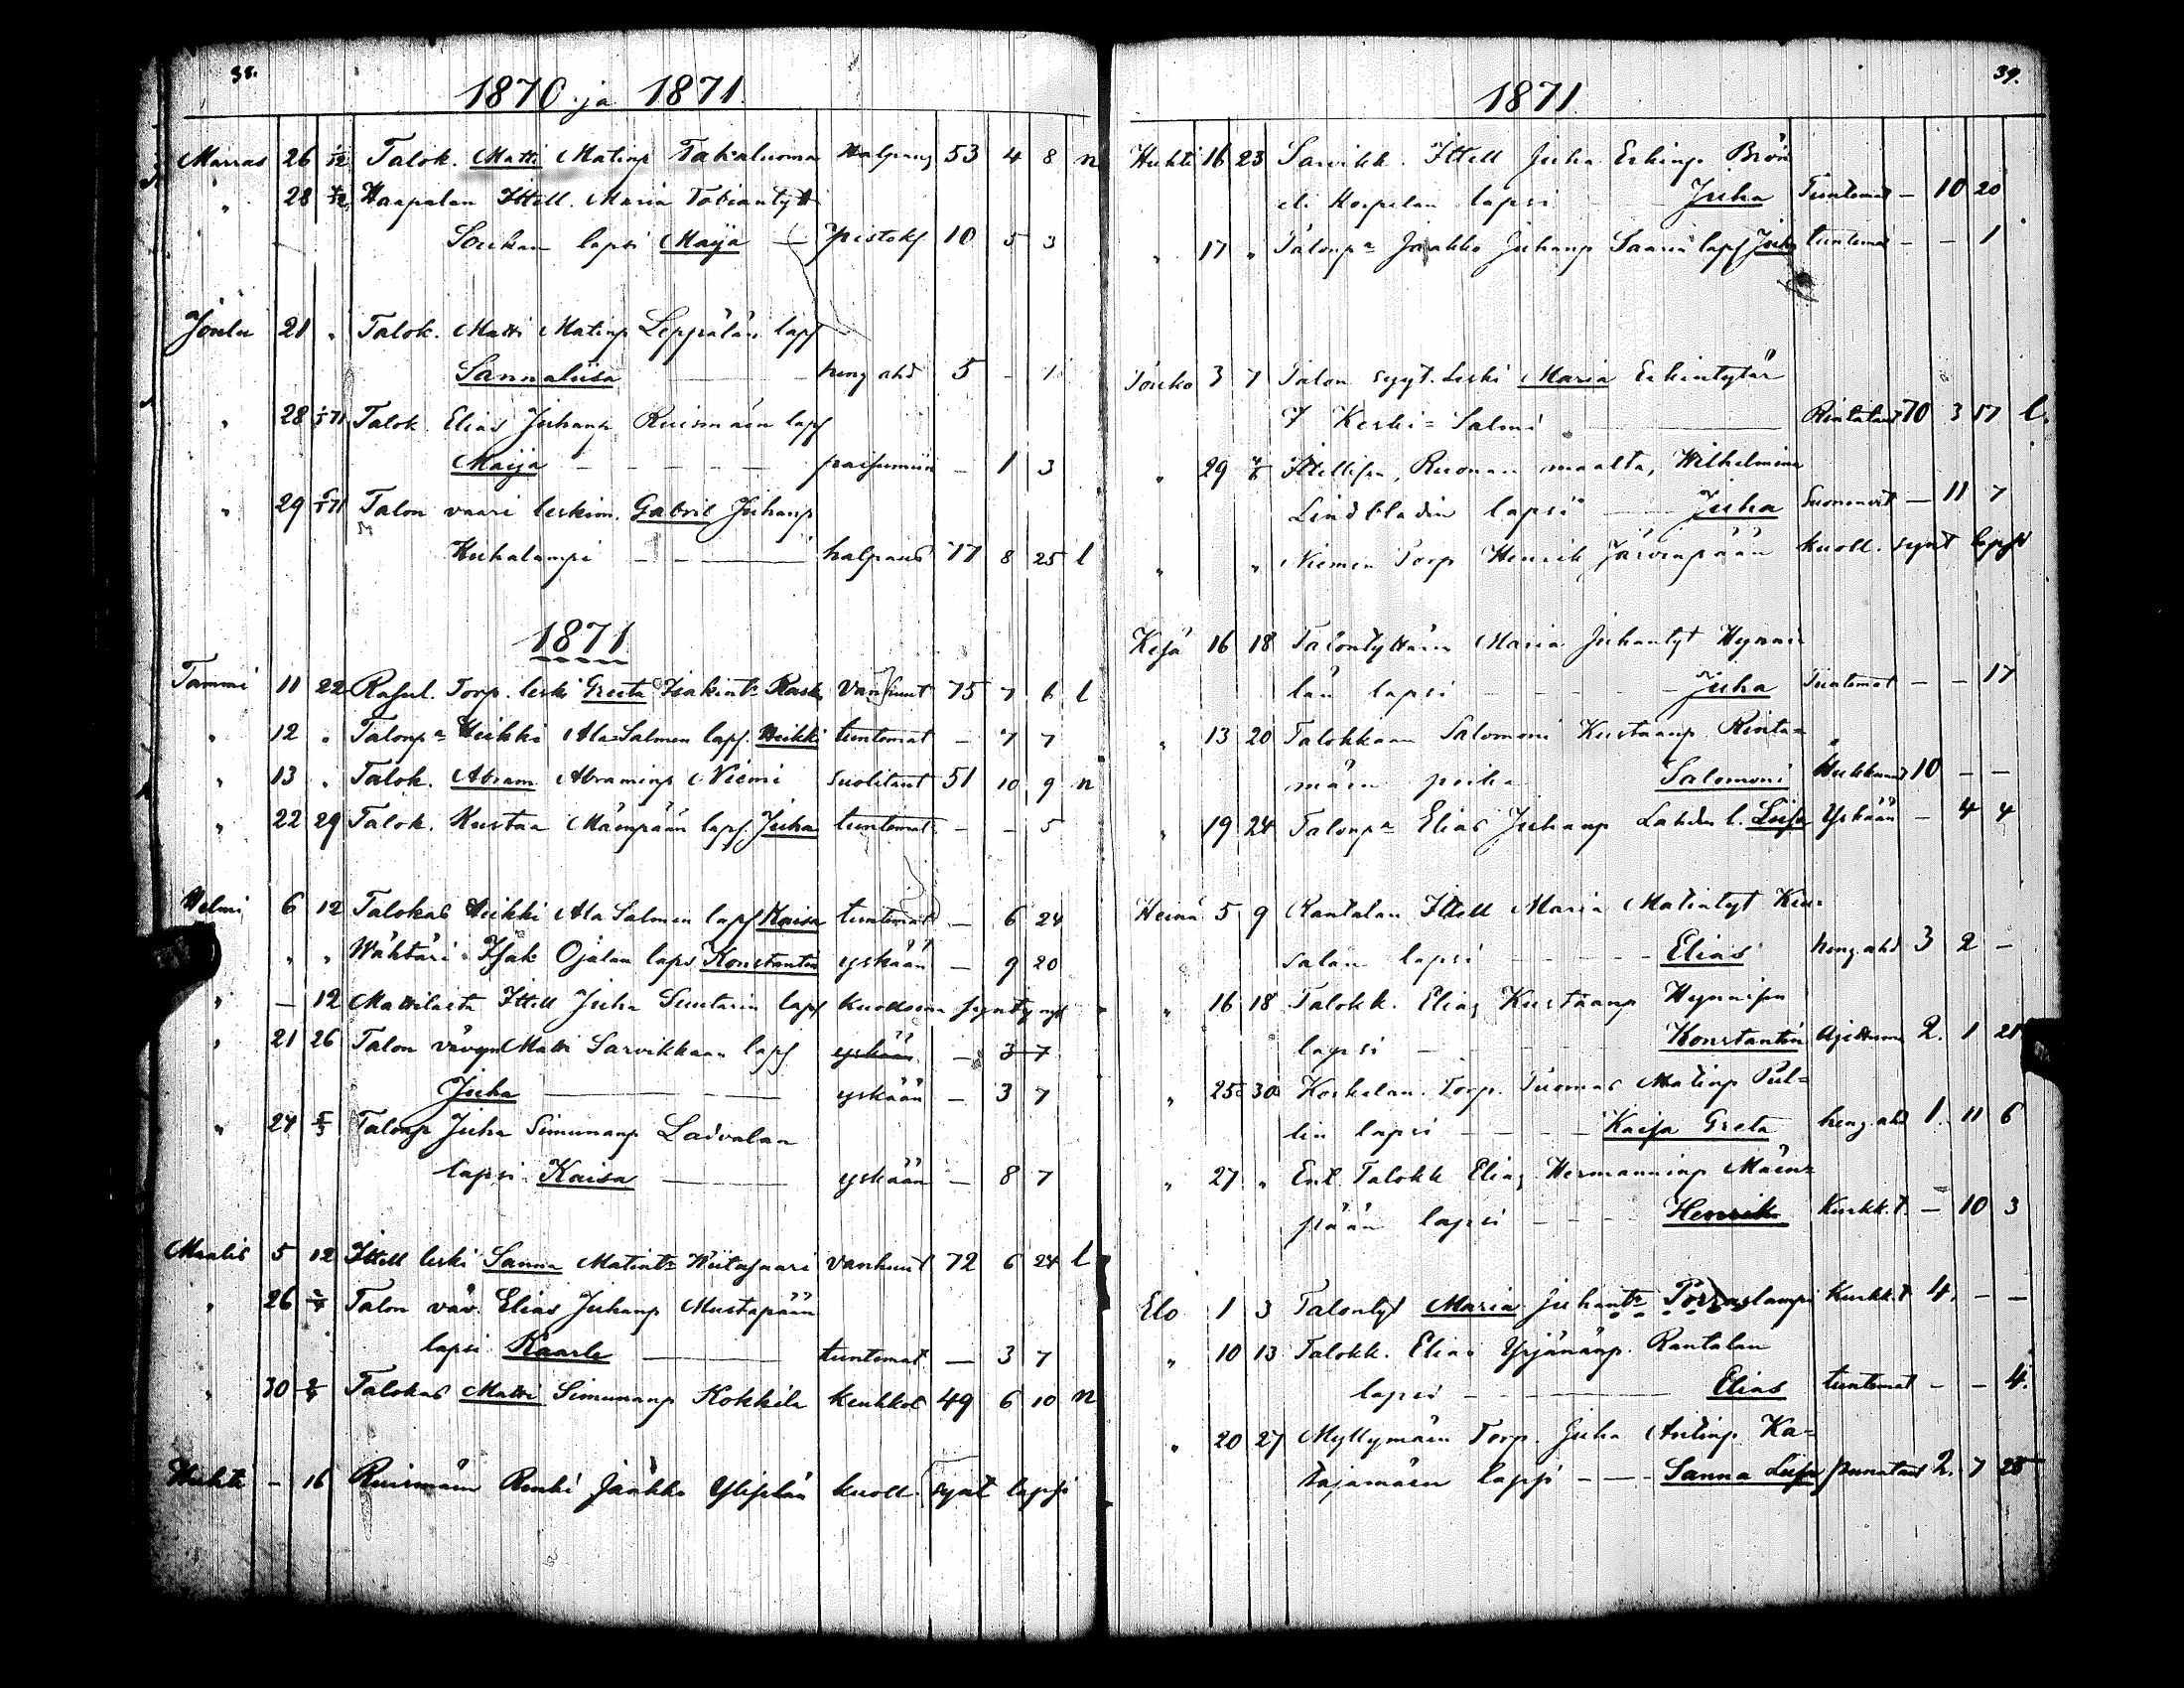 38.
1870 ja 1871.
Marras 26 4/12 Talok. Matti Matinp Takaluoma Halpaus 53 4 8 n
" 28 4/12 Haapalan Ittell. Maria Tobiantytt
Soukan lapsi Maija — pistoks 10 5 3
Joulu 21 " Talok. Matti Matinp Leppälän laps
Sannaliisa — heng ahd 5 - 1
" 28 1/1 71 Talok. Elias Juhanp Ruismäen laps
Maija — — — — — 1 3
" 29 6/1 71 Talon vaari leskim. Gabril Juhanp
Kuhalampi — — — halpaus 77 8 25 l
1871
Tammi 11 22 Torp. leski Greeta Isakint: Rask Vanhuut 75 7 6 l
" 12 " Talonp: Heikki Ala-Salmen laps. Heikki tuntemat — 7 7
" 13 " Talok. Abram Abraminp Niemi suolitaut 51 10 9 n
" 22 29 Talok. Kustaa Mäenpään laps. Juha tuntemat — - 5
Helmi 6 12 Talokas Heikki Ala Salmen laps Kaisa tuntemat — 6 24
" " Wähtäri Isak Ojalan laps Konstantin yskään — 9 20
" — 12 Mattilasta Ittell Juha Suutarin laps kuollseena syntynyt
" 21 26 Talon vävyn Matti Sarvikkaan laps yskään — 3 7
Juha — — — yskään — 3 7
" 24 5/3 Talonp Juha Simunanp Ladvalan
lapsi Kaisa — yskään — 8 7
Maalis 5 12 Ittell leski Sanna Matint: Wiitasaari vanhuut 72 6 24 l
" 26 2/4 Talon väv. Elias Juhanp Mustapään
lapsi Kaarle — tuntemat — 3 7
" 30 2/4 Talokas Matti Simunanp Kokkila keuhkot 49 6 10 n
Huhti — 16 Ruismäen Renki Jaakko Ylipään kuoll. synt lapsi
39.
1871
Huhti 16 23 Sarvikk. Ittell Juha Erkinp Brön
eli Hospelan lapsi Juha Tuntemat — 10 20
" 17 " Talonp: Jaakko Juhanp Saarin laps Juha tuntemat — — 1
Touko 3 7 Talon syyt. leski Maria Erkintytär
Keski-Salmi — Rintataut 70 3 17 l.
" 29 4/6 Ittellisen, Ruonan maalta, Wilhelmina
Lindbladin lapsi — Juha Suonenvet — 11 7
" " Niemen Torp Henrik Järvenpään kuoll. synt lapsi
Kesä 16 18 Talontyttären Maria Juhantyt Hynni-
län lapsi — — — Juha Tuntemat — — 17
" 13 20 Talokkaan Salomoni Kustaanp Rintaa
mäen poika Salomoni Hukkunut 10 — —
" 19 24 Talonp: Elias Juhanp Lahden l. Liisa Yskään — 4 4
Heinä 5 9 Rantalan Ittell Maria Matintyt Keu-
salan lapsi — — Elias heng.ahd 3 2 —
" 16 18 Talokk. Elias Kustaanp Hynnisen
lapsi — — Konstantin Ajettuma 2. 1 21
" 25 30 Koskelan Torp. Tuomas Matinp Pul-
lin lapsi — — Kaisa Greta heng.ahd 1. 11 6
" 27 " Ent. Talokk Elias Hermanninp Mäen-
pään lapsi — — Henrik Kurkk.t. — 10 3
Elo 1 3 Talontyt Maria Juhant: Porraslampi Kurkk.t 4. — —
" 10 13 Talokk. Elias Yrjänänp. Rantalan
lapsi — — Elias tuntemat — — 4.
" 20 27 Myllymäen Torp. Juha Antinp Ka-
tajamäen lapsi — — Sanna Liisa punataut 2. 7 25